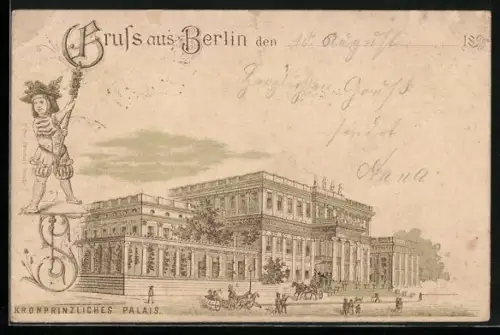 Gruſs aus Berlin den 15. August 189
Herzlichen Gruß
sendet
Nana.
KRONPRINZLICHES PALAIS.